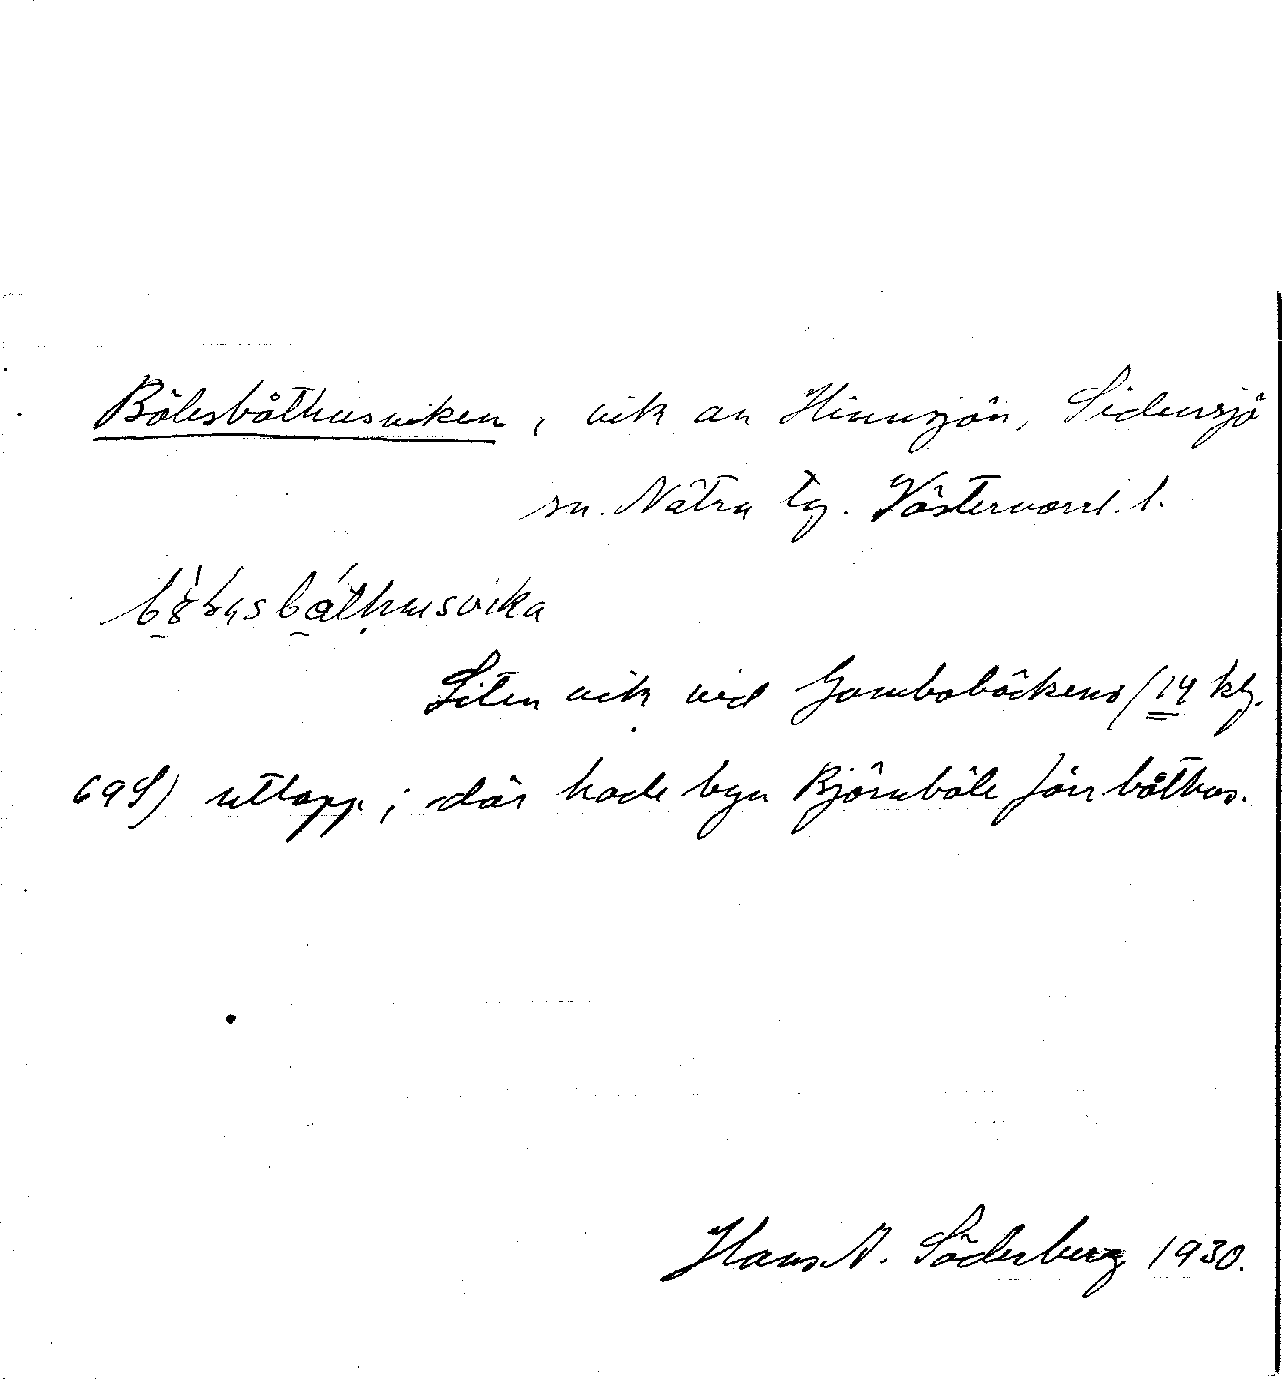 Bölesbåthusviken, vik av Hinnsjön, Sidensjö
sn. Nätra tg. Västernorrl. l.
Liten vik vid Gamboböckens (14 kbg.
699) utlopp; där hade byn Björnböle förr båthus.
Hans A. Söderberg 1930.